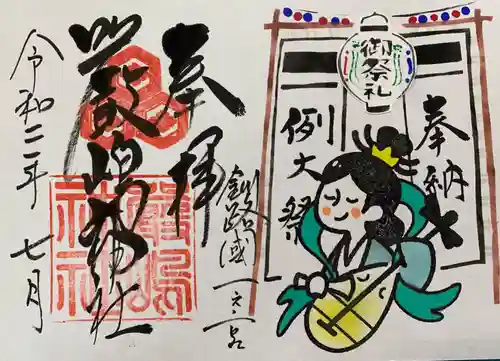 奉拝
厳嶋神社
厳嶋神社
釧路國一之宮
令和二年 七月
御祭礼
奉納
例大祭